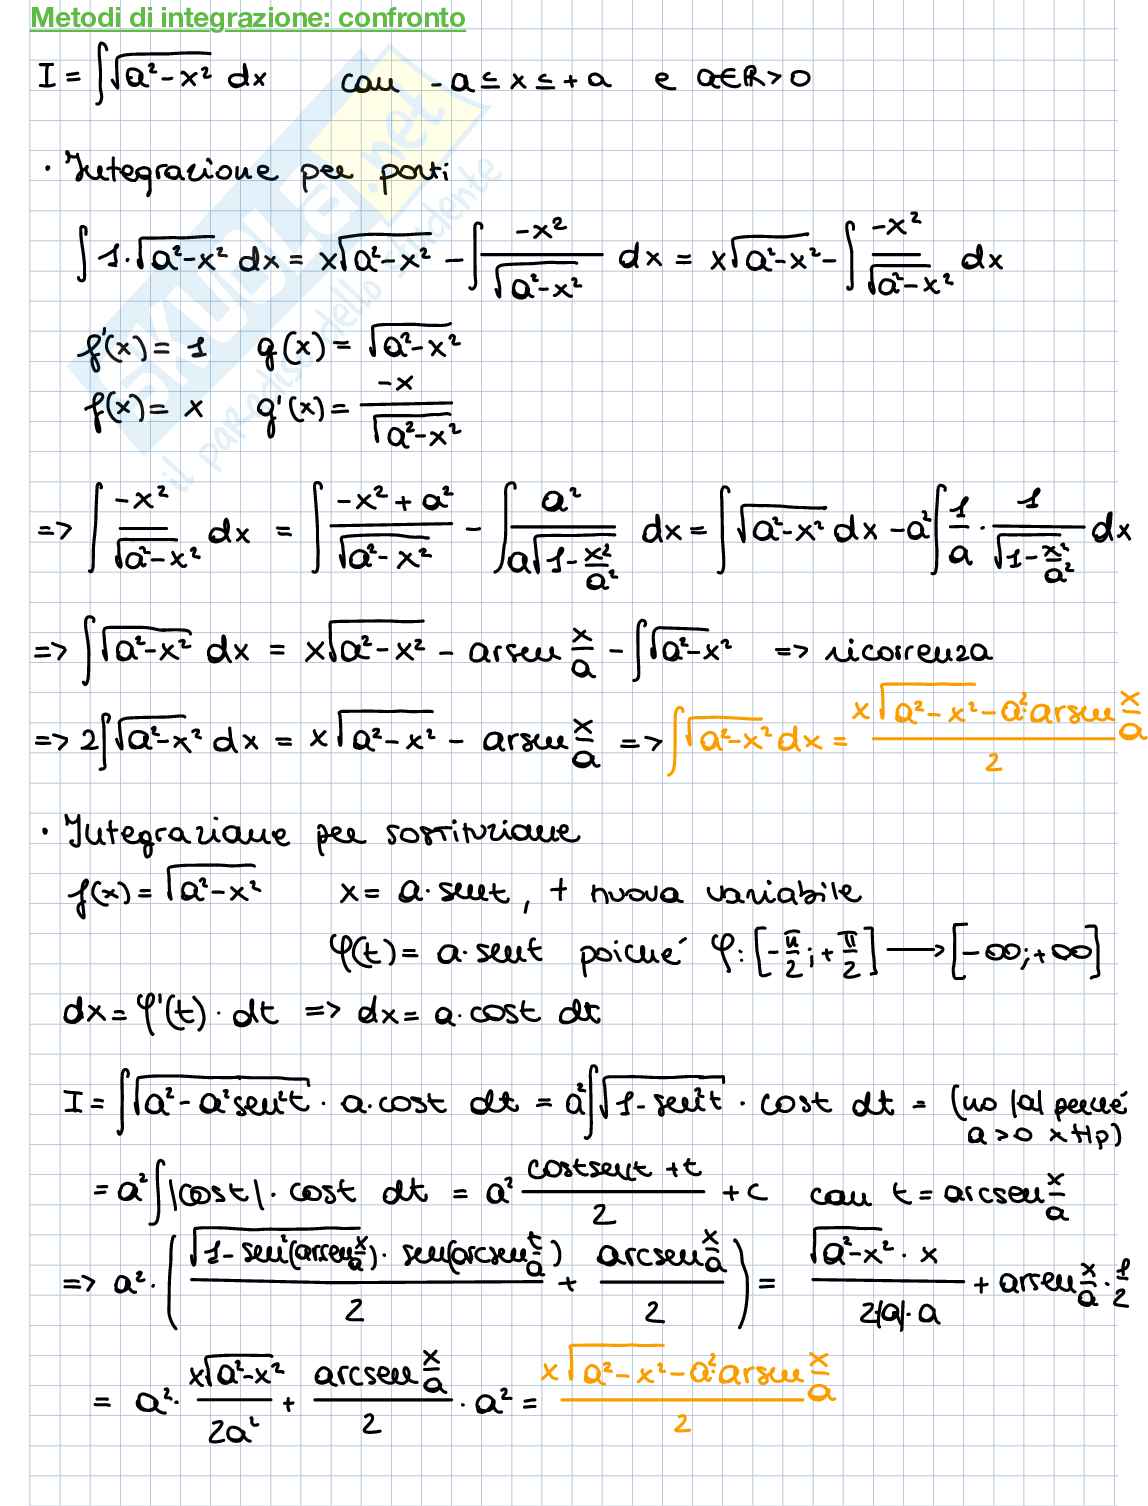 Metodi di integrazione: confronto
I = ∫√(a²-x²) dx con -a ≤ x ≤ +a e a∈ℝ>0
· Integrazione per parti
∫1·√(a²-x²) dx = x√(a²-x²) - ∫ -x²/√(a²-x²) dx = x√(a²-x²) - ∫ -x²/√(a²-x²) dx
f'(x) = 1 g(x) = √(a²-x²)
f(x) = x g'(x) = -x/√(a²-x²)
=> ∫ -x²/√(a²-x²) dx = ∫ (-x²+a²)/√(a²-x²) - ∫ a²/(a√(1-x²/a²)) dx = ∫√(a²-x²) dx - a²∫ 1/a · 1/√(1-x²/a²) dx
=> ∫√(a²-x²) dx = x√(a²-x²) - arsen x/a - ∫√(a²-x²) => ricorrenza
=> 2∫√(a²-x²) dx = x√(a²-x²) - arsen x/a => ∫√(a²-x²) dx = (x√(a²-x²) - a² arsen x/a)/2
· Integrazione per sostituzione
f(x) = √(a²-x²) x = a·sent, t nuova variabile
φ(t) = a·sent poiché φ: [-π/2; +π/2] → [-∞; +∞]
dx = φ'(t)·dt => dx = a·cost dt
I = ∫√(a²-a²sen²t) · a·cost dt = a²∫√(1-sen²t) · cost dt = (no |a| perché
a>0 x Hp)
= a²∫|cost|·cost dt = a² (costsent + t)/2 + c con t = arcsen x/a
=> a²·( √(1-sen²(arsen x/a))·sen(arcsen t/a)/2 + arcsen x/a /2 ) = √(a²-x²)·x/(2|a|·a) + arsen x/a · 1/2
= a²· x√(a²-x²)/2a² + arcsen x/a /2 · a² = (x√(a²-x²) - a² arsen x/a)/2
SKUOLA.net
il paradiso dello studente